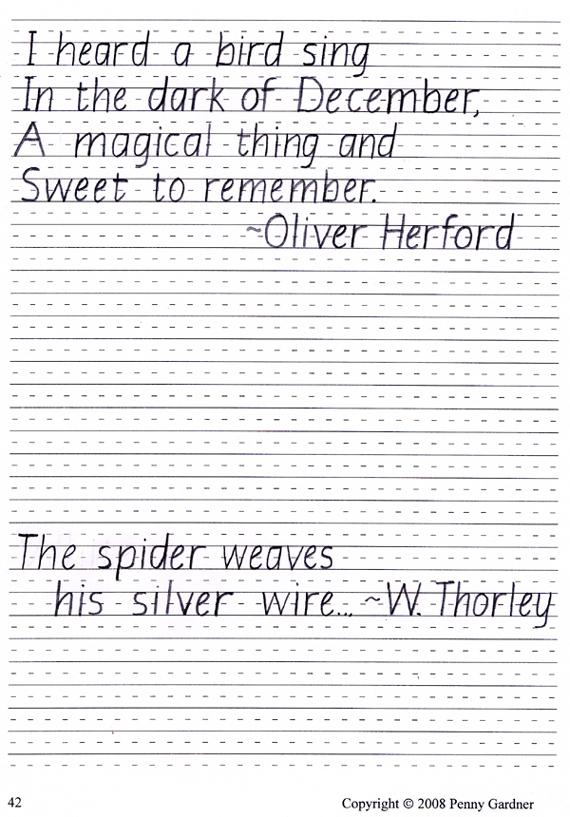 I heard a bird sing
In the dark of December,
A magical thing and
Sweet to remember.
~Oliver Herford
The spider weaves
his silver wire... ~W. Thorley
42 Copyright © 2008 Penny Gardner